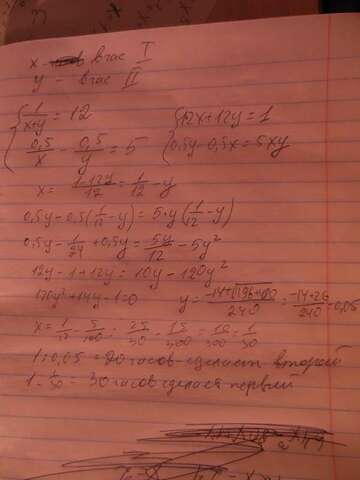 x - в час I
y - в час II
1/(x+y) = 12
12x+12y=1
0,5/x - 0,5/y = 5
0,5y-0,5x=5xy
x = (1-12y)/12 = 1/12 - y
0,5y-0,5(1/12-y) = 5·y(1/12-y)
0,5y - 1/24 + 0,5y = 5y/12 - 5y²
12y-1+12y = 10y-120y²
120y²+14y-1=0
y = = (-14+26)/240 = 0,05
x = 1/12 - 5/100 = 25/300 - 15/300 = 10/300 = 1/30
1÷0,05 = 20 часов сделает второй
1÷1/30 = 30 часов первый